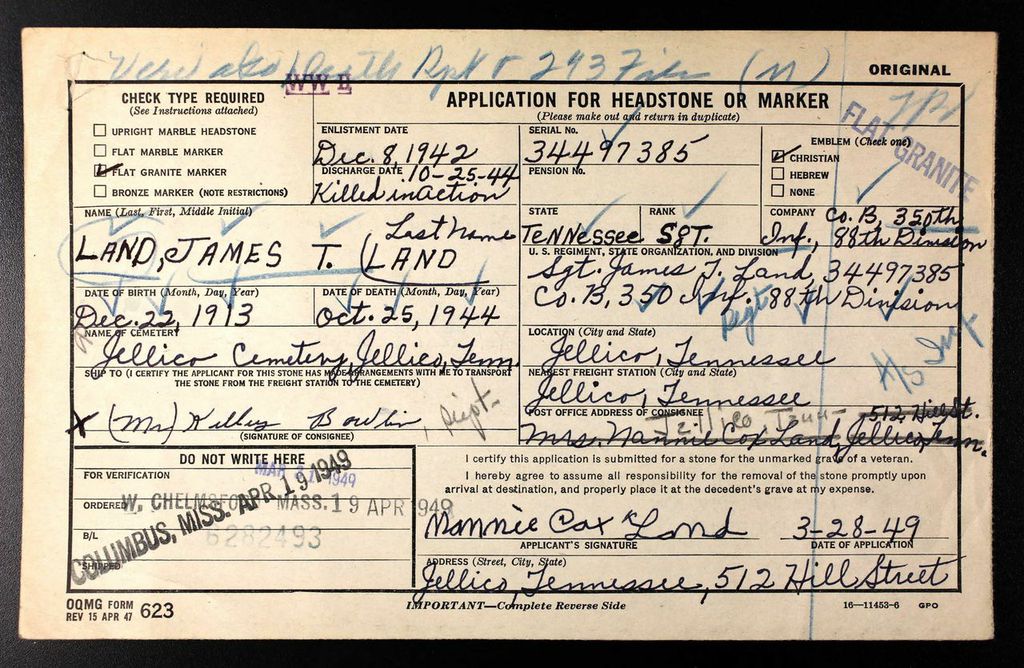 Verif also Death Rpt & 293 File (M)
WW II
ORIGINAL
CHECK TYPE REQUIRED
(See Instructions attached)
UPRIGHT MARBLE HEADSTONE
FLAT MARBLE MARKER
FLAT GRANITE MARKER
BRONZE MARKER (NOTE RESTRICTIONS)
APPLICATION FOR HEADSTONE OR MARKER
(Please make out and return in duplicate)
ENLISTMENT DATE
Dec. 8, 1942
DISCHARGE DATE 10-25-44
Killed in action
SERIAL No.
34497385
PENSION No.
EMBLEM (Check one)
CHRISTIAN
HEBREW
NONE
FLAT GRANITE
NAME (Last, First, Middle Initial)
LAND, JAMES T. (LAND Last Name
STATE
Tennessee
RANK
SGT.
COMPANY Co. B, 350th
Inf., 88th Division
U. S. REGIMENT, STATE ORGANIZATION, AND DIVISION
Sgt. James T. Land, 34497385
Co. B, 350 Inf. 88th Division
Regt
DATE OF BIRTH (Month, Day, Year)
Dec. 22, 1913
DATE OF DEATH (Month, Day, Year)
Oct. 25, 1944
NAME OF CEMETERY
Jellico Cemetery, Jellico, Tenn
LOCATION (City and State)
Jellico, Tennessee
SHIP TO (I CERTIFY THE APPLICANT FOR THIS STONE HAS MADE ARRANGEMENTS WITH ME TO TRANSPORT
THE STONE FROM THE FREIGHT STATION TO THE CEMETERY)
NEAREST FREIGHT STATION (City and State)
Jellico, Tennessee
X (Mr) Bowlin
(SIGNATURE OF CONSIGNEE)
POST OFFICE ADDRESS OF CONSIGNEE
Jellico Tenn 512 Hill St.
Mrs. Nannie Cox Land, Jellico, Tenn.
DO NOT WRITE HERE
FOR VERIFICATION
MAR 1949
ORDERED
W. CHELMSFORD, MASS. 19 APR 1949
COLUMBUS, MISS. APR 19 1949
B/L
6282493
SHIPPED
I certify this application is submitted for a stone for the unmarked grave of a veteran.
I hereby agree to assume all responsibility for the removal of the stone promptly upon
arrival at destination, and properly place it at the decedent's grave at my expense.
Nannie Cox Land 3-28-49
APPLICANT'S SIGNATURE
DATE OF APPLICATION
ADDRESS (Street, City, State)
Jellico, Tennessee, 512 Hill Street
OQMG FORM
REV 15 APR 47 623
IMPORTANT—Complete Reverse Side
16—11453-6 GPO